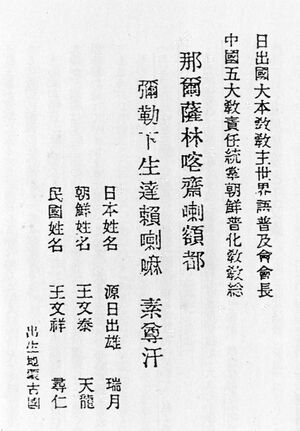 日出國大本敎敎主世界語普及會會長
中國五大敎責任統率朝鮮普化敎敎総
那爾薩林喀齋喇額都
彌勒下生達賴喇嘛 素尊汗
日本姓名 源日出雄 瑞月
朝鮮姓名 王文泰 天龍
民國姓名 王文祥 尋仁
出生地蒙古國